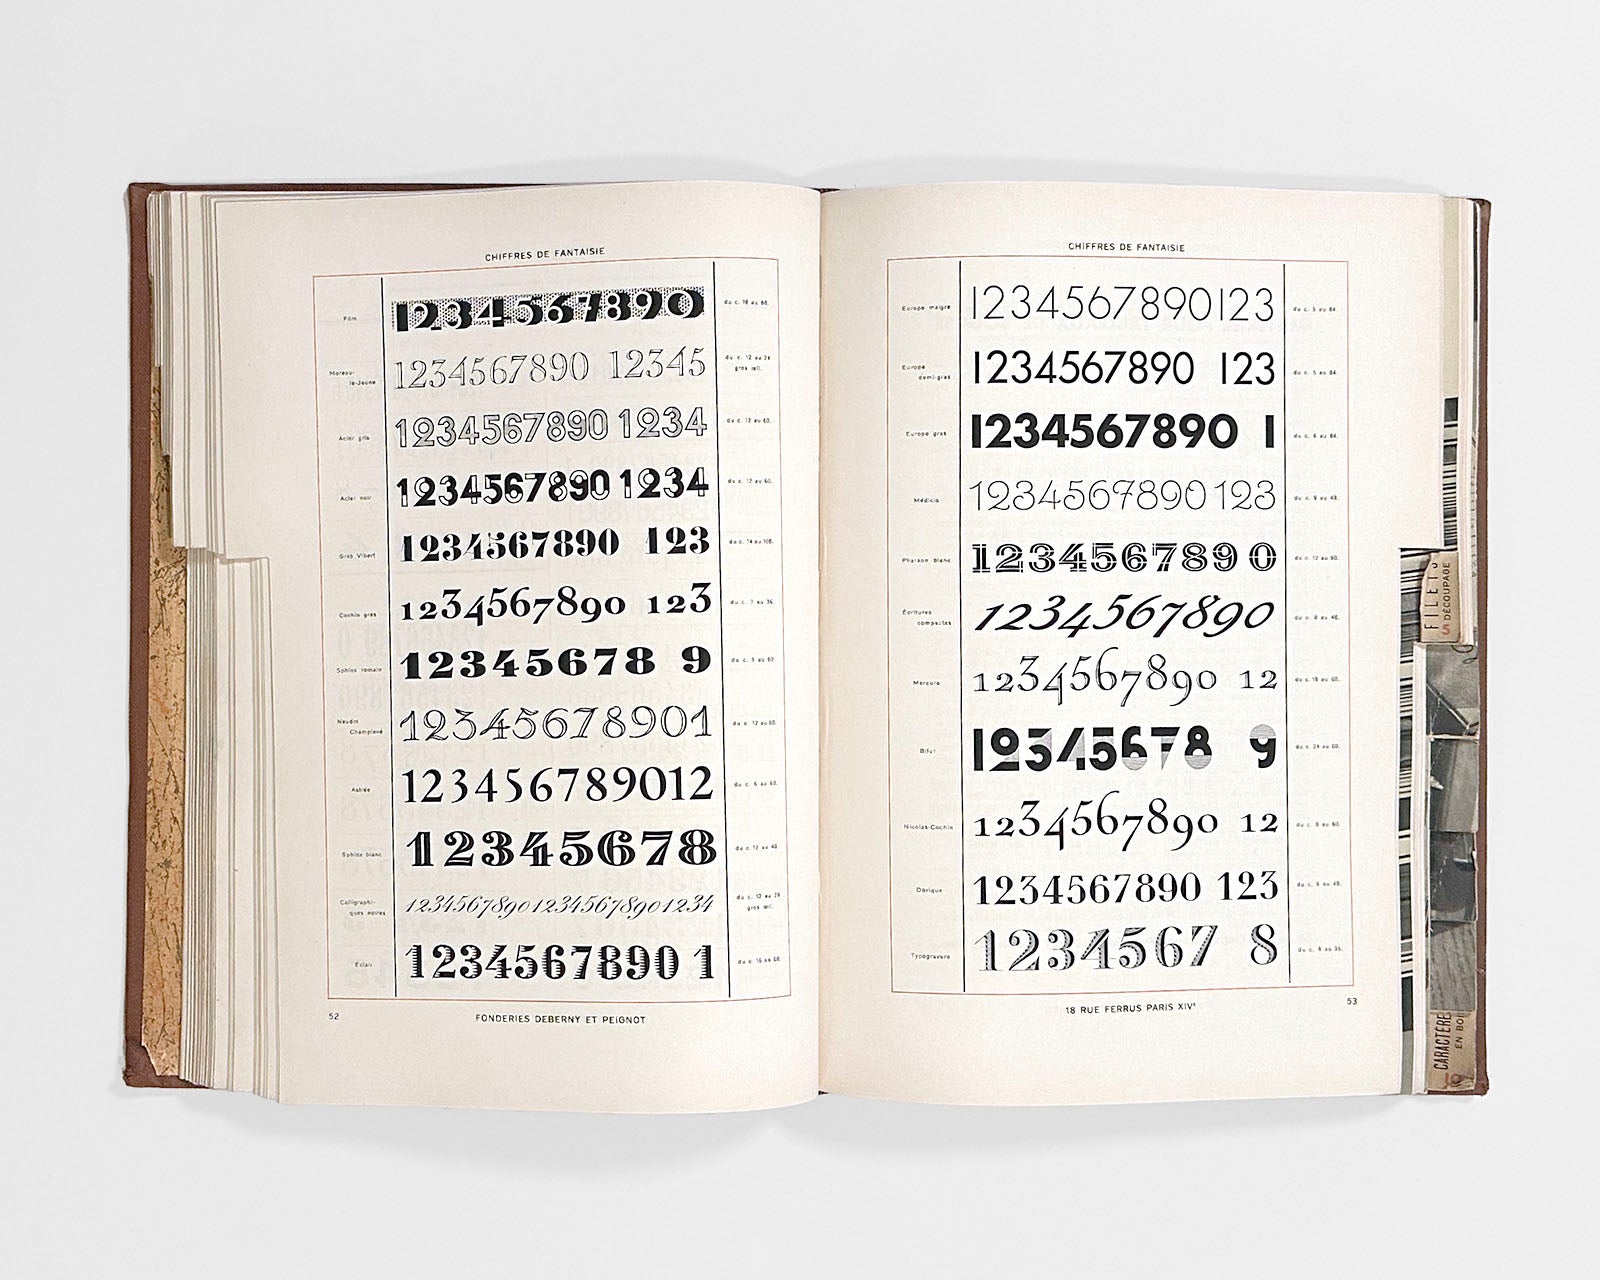 CHIFFRES DE FANTAISIE
Film
1234567890
du c. 16 au 60.
Moreau-
le-Jeune
1234567890 12345
du c. 12 au 24
gros œil.
Acier gris
1234567890 1234
du c. 12 au 60.
Acier noir
1234567890 1234
du c. 12 au 60.
Gras Vibert
1234567890 123
Cochin gras
1234567890 123
du c. 7 au 36.
Sphinx romain
12345678 9
Naudin
Champlevé
12345678901
du c. 12 au 60.
Astrée
123456789012
du c. 6 au 60.
Sphinx blanc
12345678
du c. 12 au 48.
Calligraphi-
ques noires
123456789012345678901234
gros œil.
Éclair
1234567890 1
52
FONDERIES DEBERNY ET PEIGNOT
CHIFFRES DE FANTAISIE
Europe maigre
1234567890123
du c. 5 au 84.
Europe
demi-gras
1234567890 123
du c. 5 au 84.
Europe gras
1234567890 1
du c. 6 au 84.
Médicis
1234567890 123
du c. 9 au 48.
Pharaon blanc
123456789 0
du c. 12 au 60.
Écritures
compactes
1234567890
du c. 8 au 48.
Mercure
1234567890 12
du c. 18 au 60.
Bifur
12345678 9
du c. 24 au 60.
Nicolas-Cochin
1234567890 12
Dorique
1234567890 123
du c. 5 au 48.
Typogravure
1234567 8
du c. 8 au 36.
18 RUE FERRUS PARIS XIVᵉ
53
FILETS
DÉCOUPAGE
5
CARACTÈRE
EN BOI
10